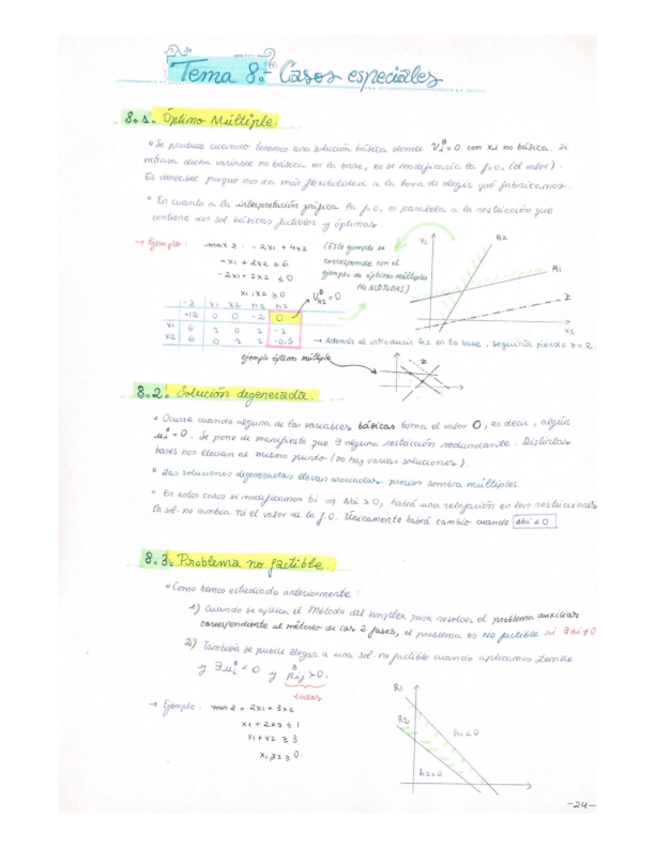 Tema 8.- Casos especiales
8.1. Óptimo Múltiple.
• Se produce cuando tenemos una solución básica donde V^B = 0 con xi no básica. Si
entrase dicha variable no básica en la base, no se modificaría la f.o. (el valor).
Es deseable porque nos da más flexibilidad a la hora de elegir qué fabricamos.
• En cuanto a la interpretación gráfica la f.o. es paralela a la restricción que
contiene dos sol. básicas factibles y óptimas.
→ Ejemplo: max z: -2x1 + 4x2 (Este ejemplo se
-x1 + 2x2 ≤ 6 corresponde con el
-2x1 + 2x2 ≤ 0 ejemplo de óptimos múltiples
x1, x2 ≥ 0 NO ACOTADAS)
x2 R2 R1 z x2
-z x1 x2 h1 h2 V^B h2 = 0
-12 0 0 -2 0
x1 6 1 0 1 -1
x2 6 0 1 1 -0,5
→ Además al introducir h2 en la base, seguiría siendo z = 2.
ejemplo óptimo múltiple
z
8.2. Solución degenerada.
• Ocurre cuando alguna de las variables básicas toma el valor 0, es decir, algún
ui^B = 0. Se pone de manifiesto que ∃ alguna restricción redundante. Distintas
bases nos llevan al mismo punto (no hay varias soluciones).
• Las soluciones degeneradas llevan asociadas precios sombra múltiples.
• En estos casos si modificamos bi ⇒ Δbi > 0, habrá una relajación en las restricciones
la sol. no cambia ni el valor de la f.o. Únicamente habrá cambio cuando Δbi < 0
8.3. Problema no factible.
• Como hemos estudiado anteriormente:
1) Cuando se aplica el Método del simplex para resolver el problema auxiliar
correspondiente al método de las 2 fases, el problema es No factible si ∃ai ≠ 0
2) También se puede llegar a una sol. no factible cuando aplicamos Lemke
y ∃ui^B < 0 y pij^B > 0.
todos
→ Ejemplo. min z = 2x1 + 3x2
x1 + 2x2 ≤ 1
x1 + x2 ≥ 3
x1, x2 ≥ 0.
R1
R2
h1 < 0
h2 < 0
-24-